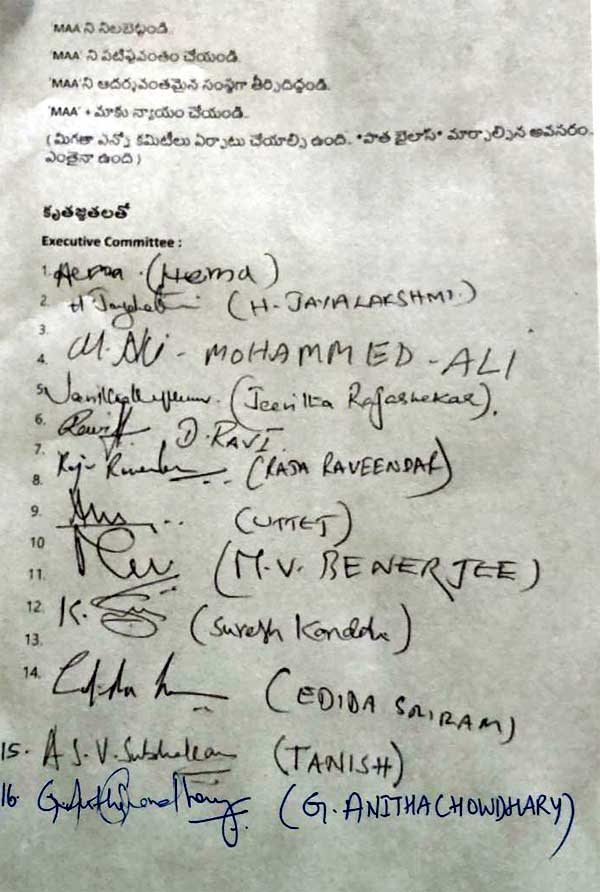 'MAA' ని నిలబెట్టండి.
'MAA' ని పటిష్ఠవంతం చేయండి.
'MAA'ని ఆదర్శవంతమైన సంస్థగా తీర్చిదిద్దండి.
'MAA' + మాకు న్యాయం చేయండి..
( మిగతా ఎన్నో కమిటీలు ఏర్పాటు చేయాల్సి ఉంది.. "పాత బైలాస్" మార్చాల్సిన అవసరం..
ఎంతైనా ఉంది )
కృతజ్ఞతలతో
Executive Committee :
1. Hema (Hema)
2. (H. JAYALAKSHMI.)
3.
4. M. Ali - MOHAMMED - ALI
5. (Jeevitha Rajashekar).
6. D. RAVI.
7.
8. Raja Raveendar (RAJA RAVEENDAR)
9. (UTTEJ)
10
11. (M. V. BENERJEE)
12. K. (Suresh Kondeti)
13.
14. (EDIDA SRIRAM)
15. A S. V. (TANISH)
16. (G. ANITHA CHOWDHARY)